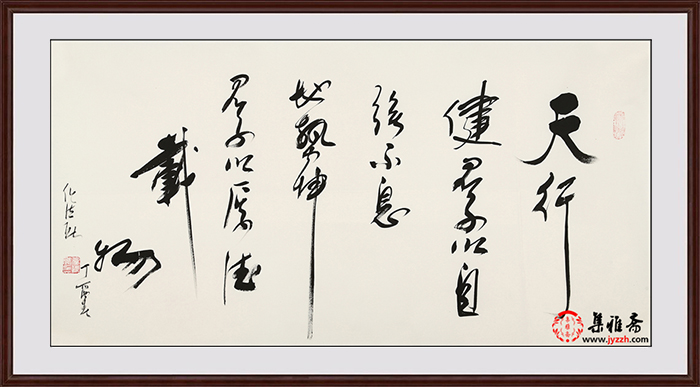 天行
健君子以自
强不息
地勢坤
君子以厚德
載
物
丁酉
集雅斋
www.jyzzh.com